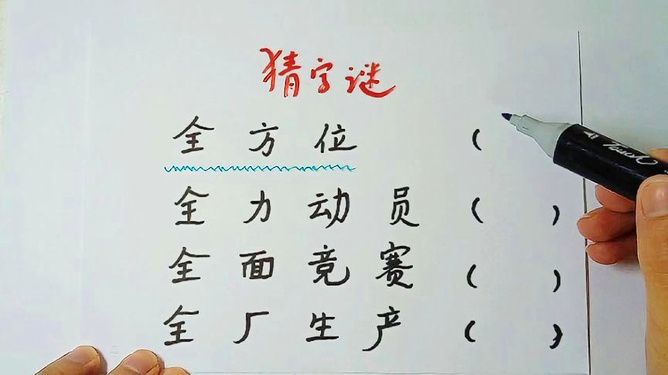 猜字谜
全方位 (
全力动员 ( )
全面竞赛 ( )
全厂生产 ( )